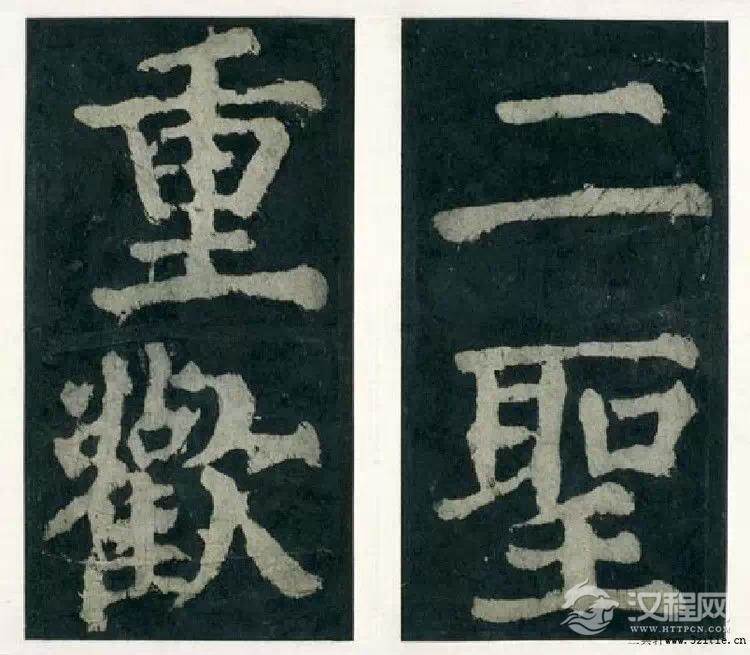 二聖
重歡
汉程网
WWW.HTTPCN.COM
www.52itie.cn